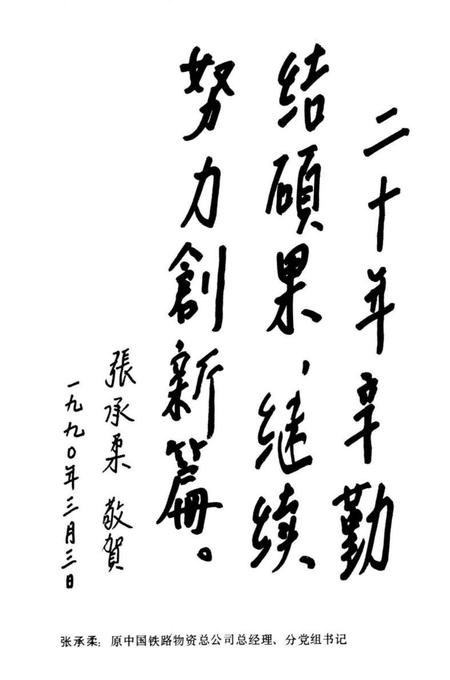 二十年辛勤
结硕果，继续
努力創新篇。
張承柔 敬賀
一九九〇年三月三日
张承柔：原中国铁路物资总公司总经理、分党组书记